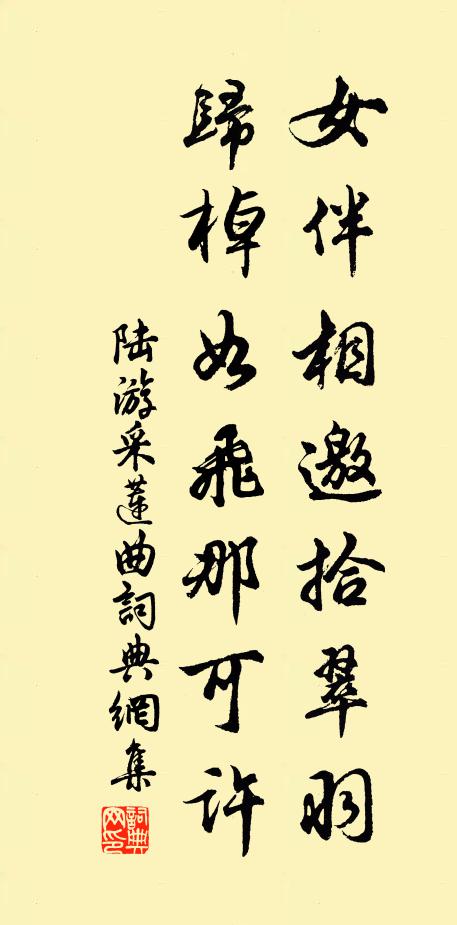 女伴相邀拾翠羽
歸棹如飛那可許
陆游采蓮曲詞典網集
詞典網印